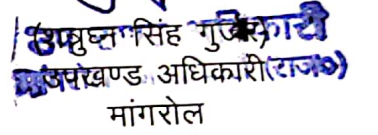 (शत्रुघ्न सिंह गुर्जर)
उपखण्ड अधिकारी(राज०)
मांगरोल